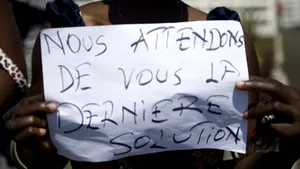 NOUS ATTENDONS
DE VOUS LA
DERNIERE
SOLUTION